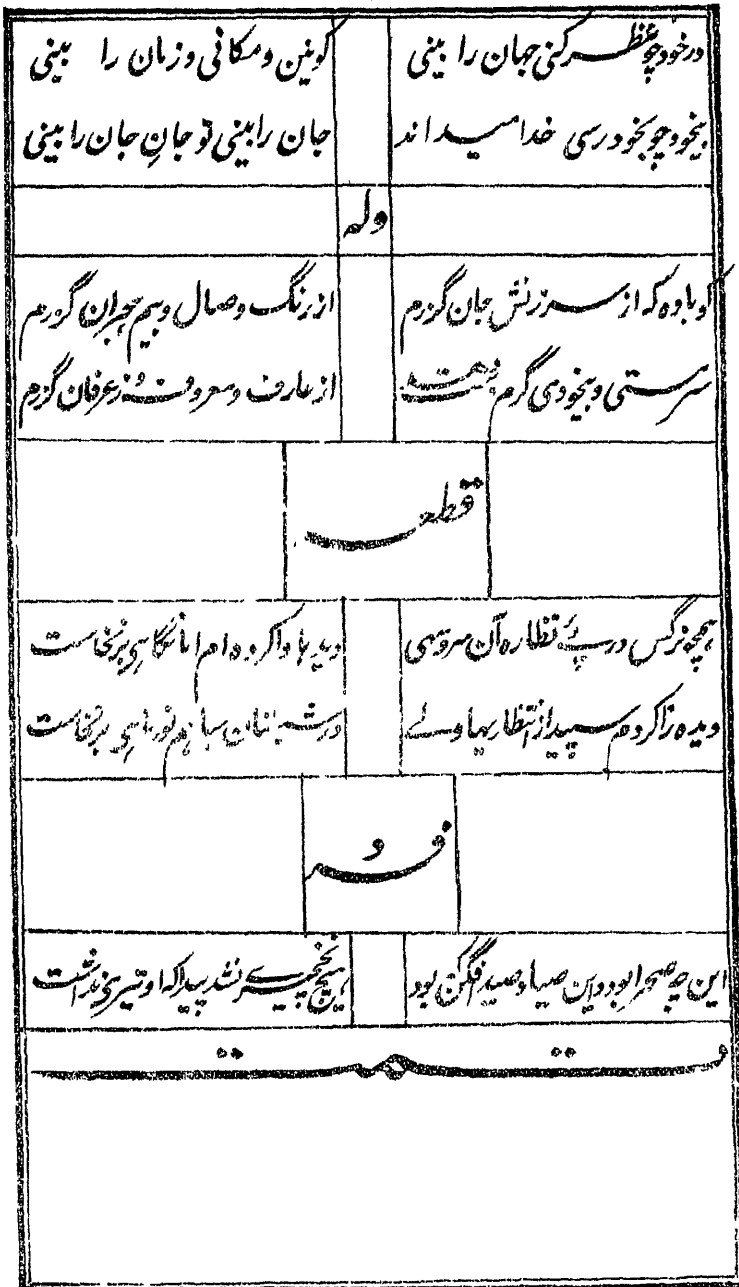 در خود چو نظر کنی جهان را بینی کونین و مکانی و زمان را بینی
بیخود چو بخود رسی خدا میداند جان را بینی تو جانِ جان را بینی
وله
کو باده که از سرزنش جان گذرم از رنگ وصال و بیم هجران گذرم
سرمستی و بیخودی گرم دست از عارف و معروف و ز عرفان گذرم
قطعه
همچو نرگس در پئے نظاره آن سروسهی دیدها وا کرده ام اما نگاهی برنخاست
دیده را کردم سپید از انتظاریها ولے در شبستان سیاهم نور ماهی برنخاست
فرد
این چه صحرا بود و این صیاد صیدافگن بود هیچ نخچیرے نشد پیدا که او تیری نداشت
تمت